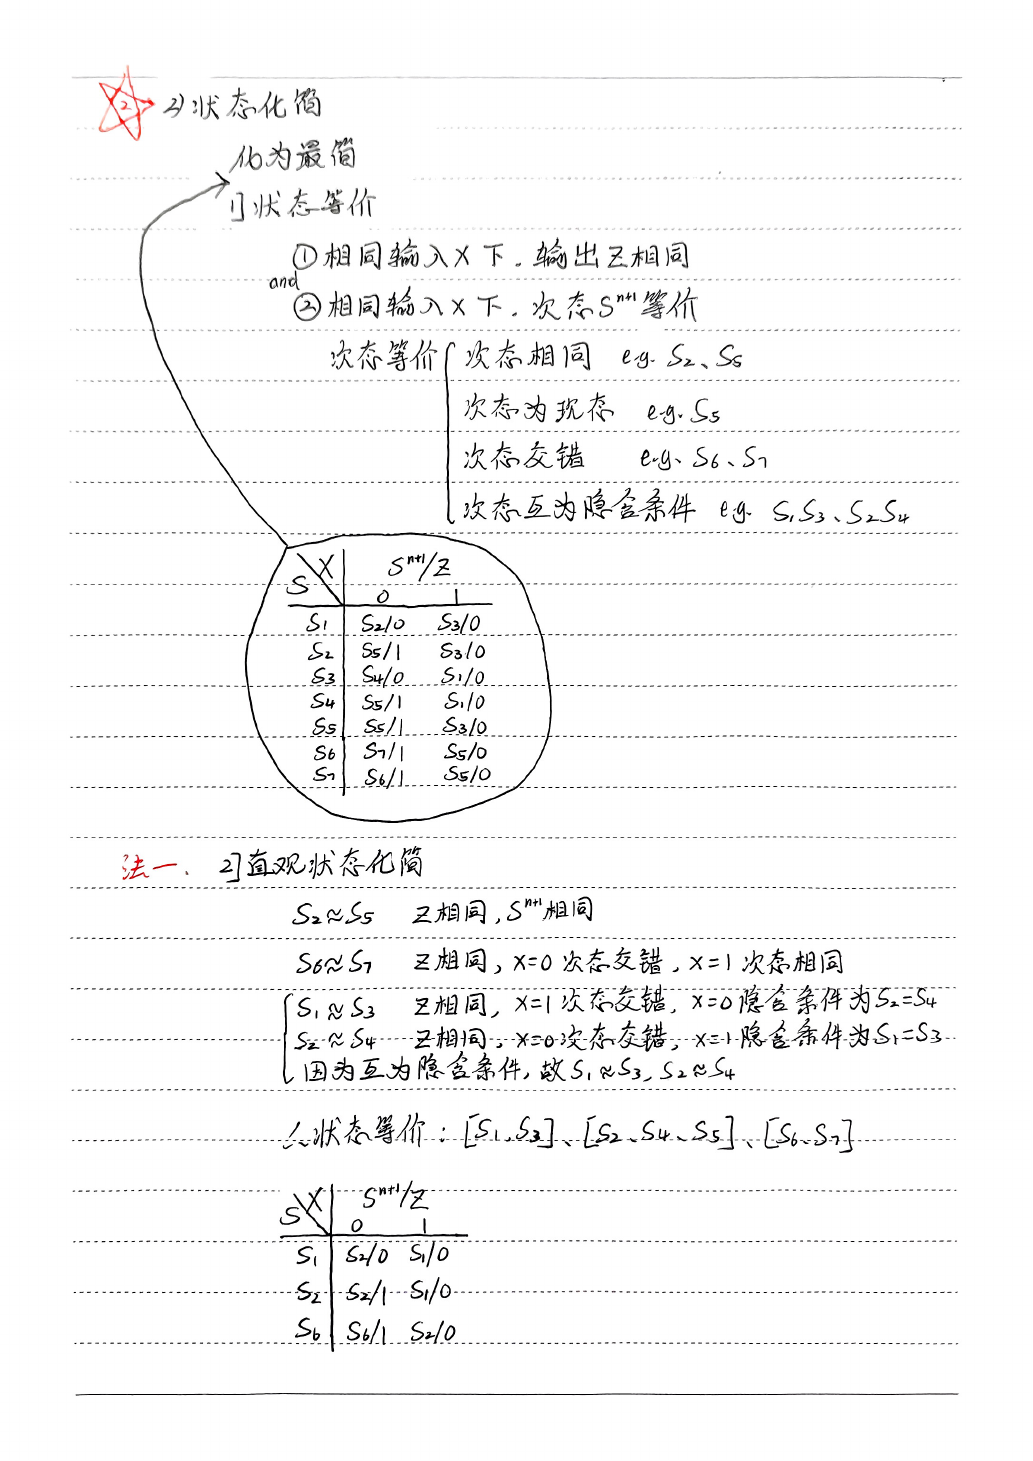 ② 2)状态化简
化为最简
1]状态等价
①相同输入X下.输出Z相同
and
②相同输入X下.次态Sⁿ⁺¹等价
次态等价{次态相同 e.g. S₂、S₅
次态为现态 e.g. S₅
次态交错 e.g. S₆、S₇
次态互为隐含条件 e.g. S₁S₃、S₂S₄
S X Sⁿ⁺¹/Z
0 1
S₁ S₂/0 S₃/0
S₂ S₅/1 S₃/0
S₃ S₄/0 S₁/0
S₄ S₅/1 S₁/0
S₅ S₅/1 S₃/0
S₆ S₇/1 S₅/0
S₇ S₆/1 S₅/0
法一. 2]直观状态化简
S₂≈S₅ Z相同,Sⁿ⁺¹相同
S₆≈S₇ Z相同, X=0次态交错, X=1次态相同
S₁≈S₃ Z相同, X=1次态交错, X=0隐含条件为S₂=S₄
S₂≈S₄ Z相同, X=0次态交错, X=1隐含条件为S₁=S₃
因为互为隐含条件,故S₁≈S₃, S₂≈S₄
∴状态等价:[S₁、S₃]、[S₂、S₄、S₅]、[S₆、S₇]
S X Sⁿ⁺¹/Z
0 1
S₁ S₂/0 S₁/0
S₂ S₂/1 S₁/0
S₆ S₆/1 S₂/0